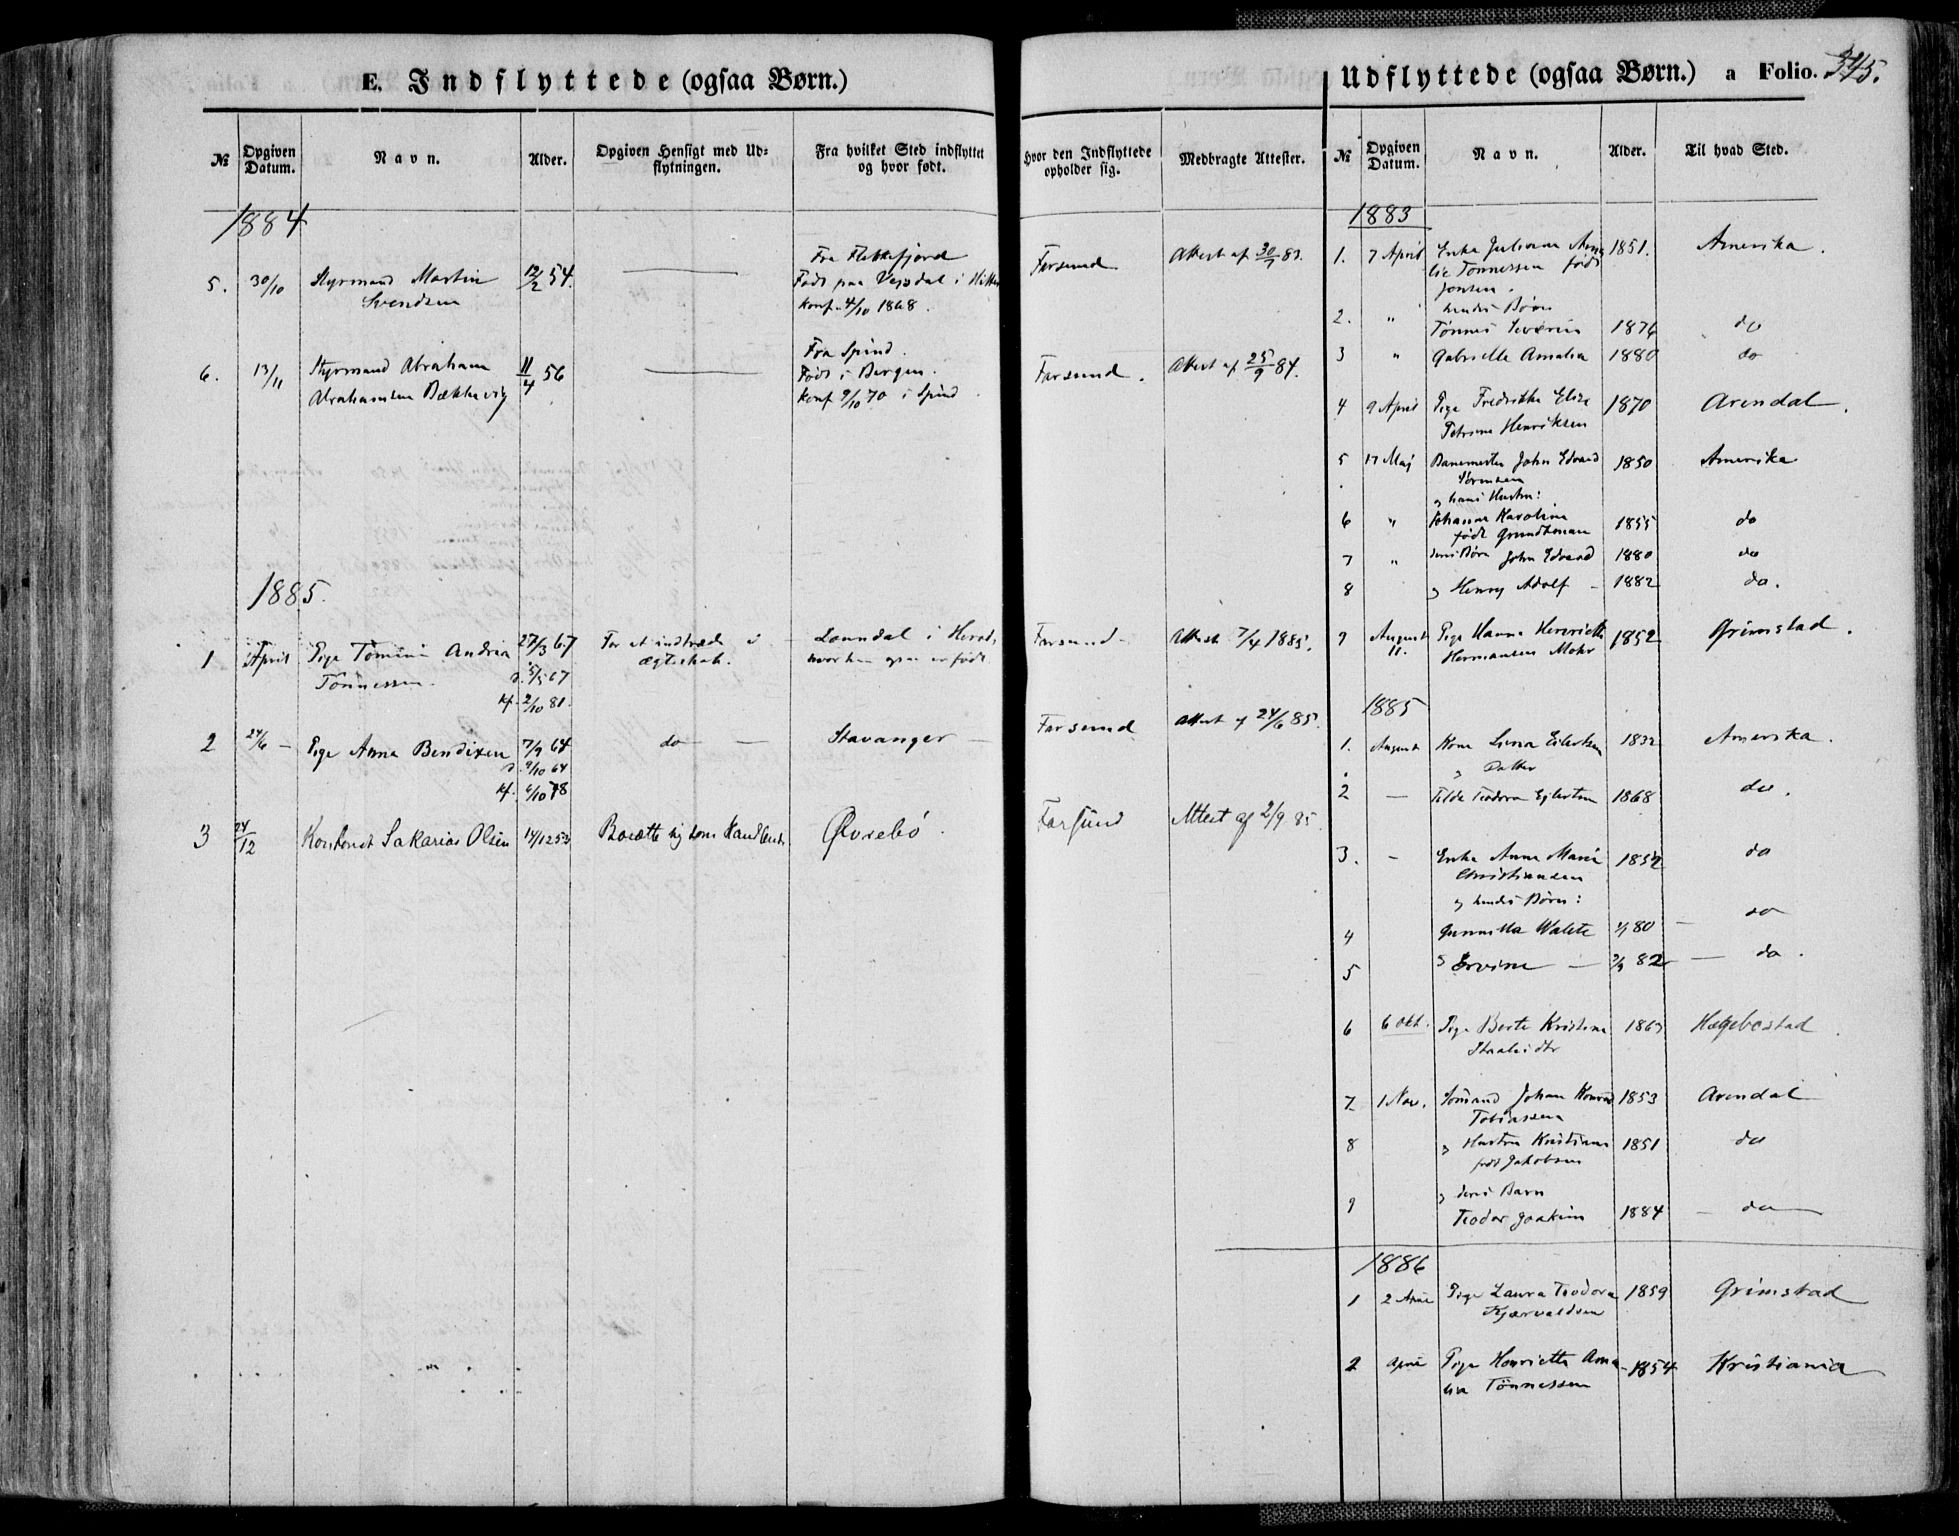 E. Indflyttede (ogsaa Børn.)
№ Opgiven Datum. Navn. Alder. Opgiven Hensigt med Udflytningen. Fra hvilket Sted indflyttet og hvor født. Hvor den Indflyttede opholder sig. Medbragte Attester.
1884
Fra Flekkefjord
5. 30/10 Styrmand Martin 12/2 54 Født paa i Farsund Attest af 83.
Svendsen konf. 4/10 1868.
Fra Spind.
6. 13/11 Styrmand Abraham 11/4 56 Født i Bergen. Farsund. Attest af 25/9 84.
Abrahamsen Bækkevig konf 9/10 70 i Spind
1885.
1 April Pige Andrea 27/3 67 For at indtræde i i Herad, Farsund Attest 7/4 1885.
Tønnessen. d. 5/5 67 ægteskab. hvor hun ogsaa er født
kf. 2/10 81.
2 24/6 Pige Anna Bendixen 7/9 64 do Stavanger Farsund Attest af 24/6 85.
d. 9/10 64
kf. 6/10 78
3 24/12 Sakarias Olsen 14/12 53 Bosætte sig som Øvrebø Farsund Attest af 2/9 85.
Udflyttede (ogsaa Børn.) a Folio. 345.
№ Opgiven Datum. Navn. Alder. Til hvad Sted.
1883
1. 7 April Enke Juliane Ama 1851. Amerika.
lie Tønnessen født
Jensen.
hendes Børn
2. " Tønnes Severin 1876 do
3 " Gabrielle Amalia 1880 do
4 9 April Pige Fredrikke Elise 1870 Arendal.
Petrine Henriksen
5 17 Maj John Edvard 1850 Amerika
Sørensen
og hans Hustru:
6 " Johanne Karoline 1855 do
født
7 " deres Børn John Edvard 1880 do
8 og Henry Adolf 1882 do.
9 August Pige Hanna Henriette 1852 Grimstad.
11. Hermansen Mohr
1885
1. August Kone Lina Eilertsen 1832 Amerika.
og Datter
2 — Tilda Teodora Eilertsen 1868 do.
3. - Enke Anna Marie 1852 do
Christiansen
og hendes Børn:
4 80 do
5 og 82 do.
6 6 Okt. Pige Berte Kristine 1863 Hægebostad
7 1 Nov. Sømand Johan Konrad 1853 Arendal
Tobiassen
8 og Hustru Kristiane 1851 do
født Jakobsen
og deres Barn
9 Teodor Joakim 1884 do
1886
1 2 April Pige Laura Teodora 1859 Grimstad
2 April Pige Henriette Ama 1854 Kristiania
lia Tønnessen